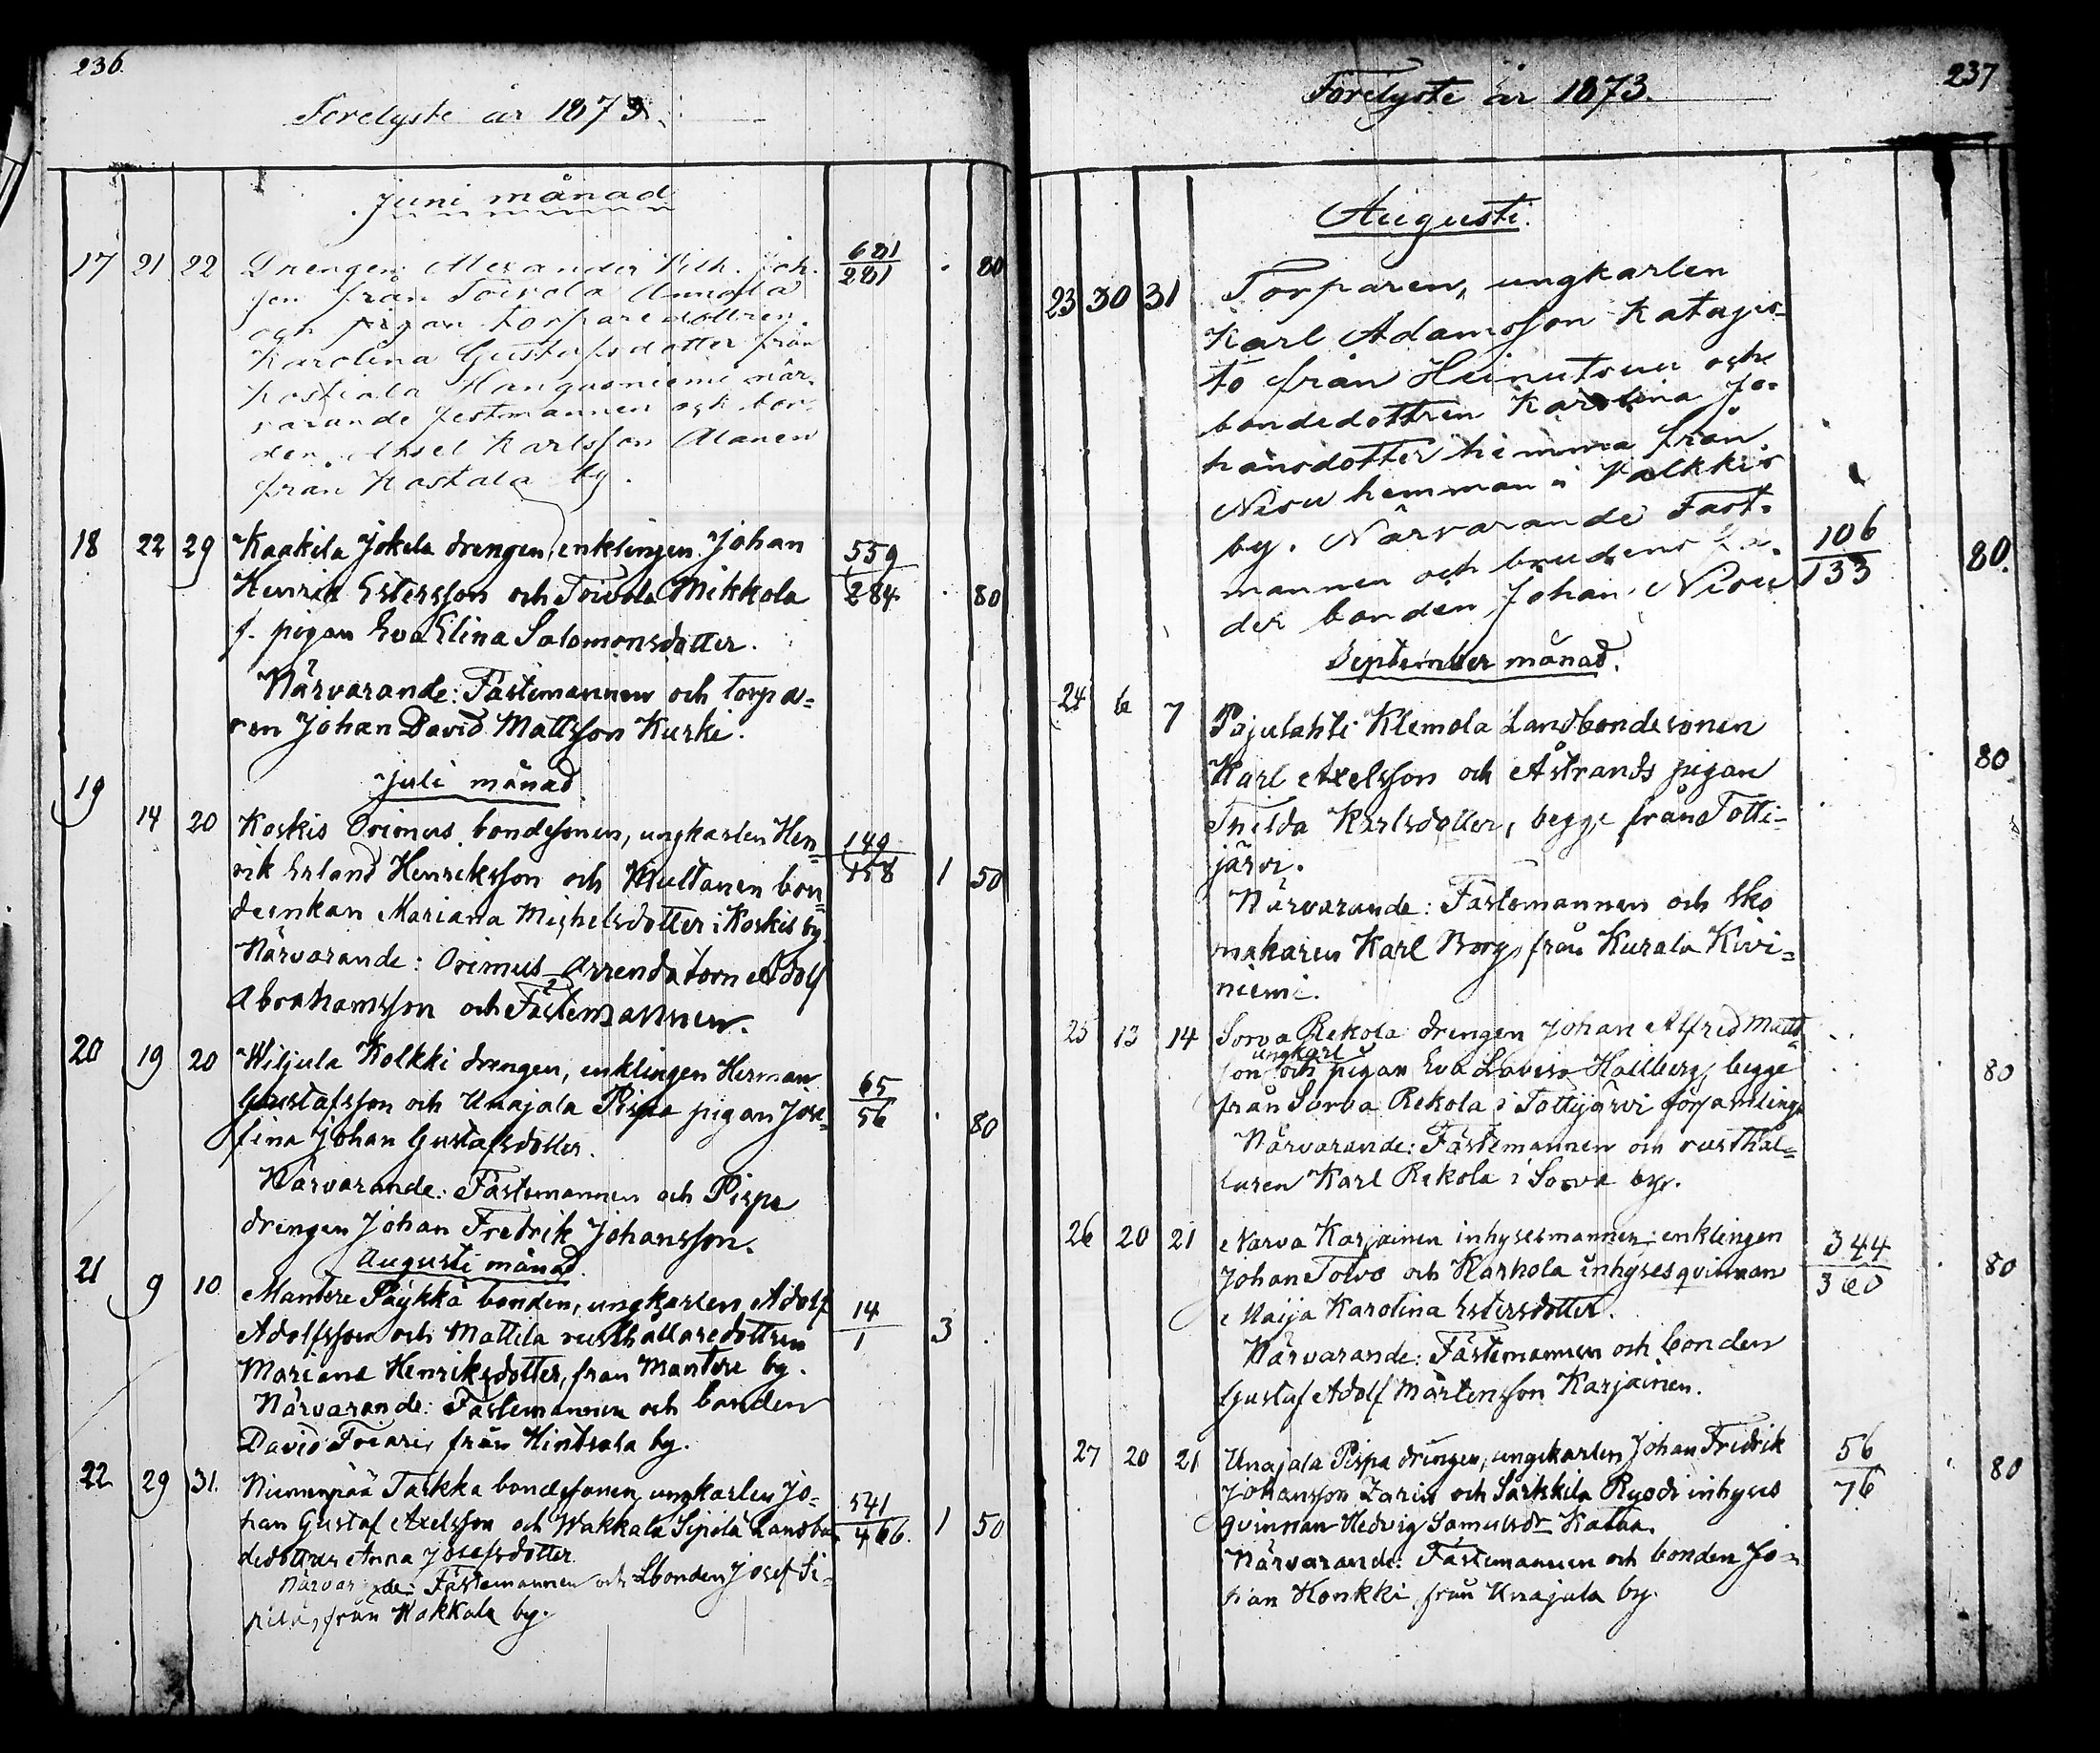 236.
Forelyste år 1873.
Juni månad
17 21 22 Drengen Alexander Vilh. Joh. 681/281 . 80
son från Toivola Annala
och pigan torparedottren
Karolina Gustafsdotter från
Kostiala Hanguoniemi när-
varande festmannen och bon-
den Axel Karlsson Alanen
från Kastala by.
18 22 29 Kaakila Jokela drengen, enklingen Johan 559/284 . 80
Henrik Estersson och Toivola Mikkola
f. pigan Eva Elina Salomonsdotter.
Närvarande: Fästemannen och torpa-
ren Johan David Mattsson Kurki.
Juli månad
19 14 20 Koskis Orimus bondesonen, ungkarlen Hen= 149/158 1 50
rik Erland Henriksson och Multanen bon=
deenkan Mariana Michelsdotter i Koskis by.
Närvarande: Orimus arrendatorn Adolf
Abrahamsson och Fästemannen.
20 19 20 Wiljula Kolkki drengen, enklingen Herman 65/56 . 80
Gustafsson och Unajala Pispa pigan Jose=
fina Johan Gustafsdotter.
Närvarande: Fästemannen och Pispa
drengen Johan Fredrik Johansson.
Augusti månad.
21 9 10 Mantere Päykkä bonden, ungkarlen Adolf 14/1 3 .
Adolfsson och Mattila rusthållaredottren
Mariana Henriksdotter, från Mantere by.
Närvarande: Fästemannen och bonden
David Friari, från Hintsala by.
22 29 31. Niemenpää Tarkka bondesonen, ungkarlen Jo- 541/466. 1 50
han Gustaf Axelsson och Wakkala Sipilä Landbon-
dedottren Anna Josefsdotter
Närvarande: Fästemannen och Lbonden Josef Si-
pilä, från Wakkala by.
237
Förelyste år 1873.
Augusti.
23 30 31 Torparen, ungkarlen
Karl Adamsson Katajis-
to från Heinutsuu och
bondedottren Karolina Jo-
hansdotter hemma från
Nisu hemman i Valkkis
by. Närvarande Fäst-
mannen och brudens fa- 106/133 80.
der bonden Johan Nisu
September månad.
24 6 7 Pajulahti Klemola Landbondesonen 80
Karl Axelsson och Åstrands pigan
Thilda Karlsdotter, begge från Totti-
järvi.
Närvarande: Fästemannen och sko
makaren Karl Borg, från Kurala Kivi=
niemi.
25 13 14 Sorva Rekola drengen Johan Alfred Matts=
ungkarl
son och pigan Eva Lovisa Hallberg, begge 80
från Sorva Rekola i Tottijärvi församling.
Närvarande: Fästemannen och rusthål=
laren Karl Rekola i Sorva by.
26 20 21 Narva Karjainen inhysesmannen enklingen 344/360 . 80
Johan Toivo och Karhola inhysesqvinnan
Maija Karolina Estersdotter.
Närvarande: Fästemannen och bonden
Gustaf Adolf Mårtensson Karjainen.
27 20 21 Unajala Pispa drengen, ungkarlen Johan Fredrik 56/76 . 80
Johansson Zarin och Sarkkila Ryodi inhyses
qvinnan Hedvig Samuelsdr Kataa.
Närvarande: Fästemannen och bonden Jo-
han Honkki, från Unajala by.